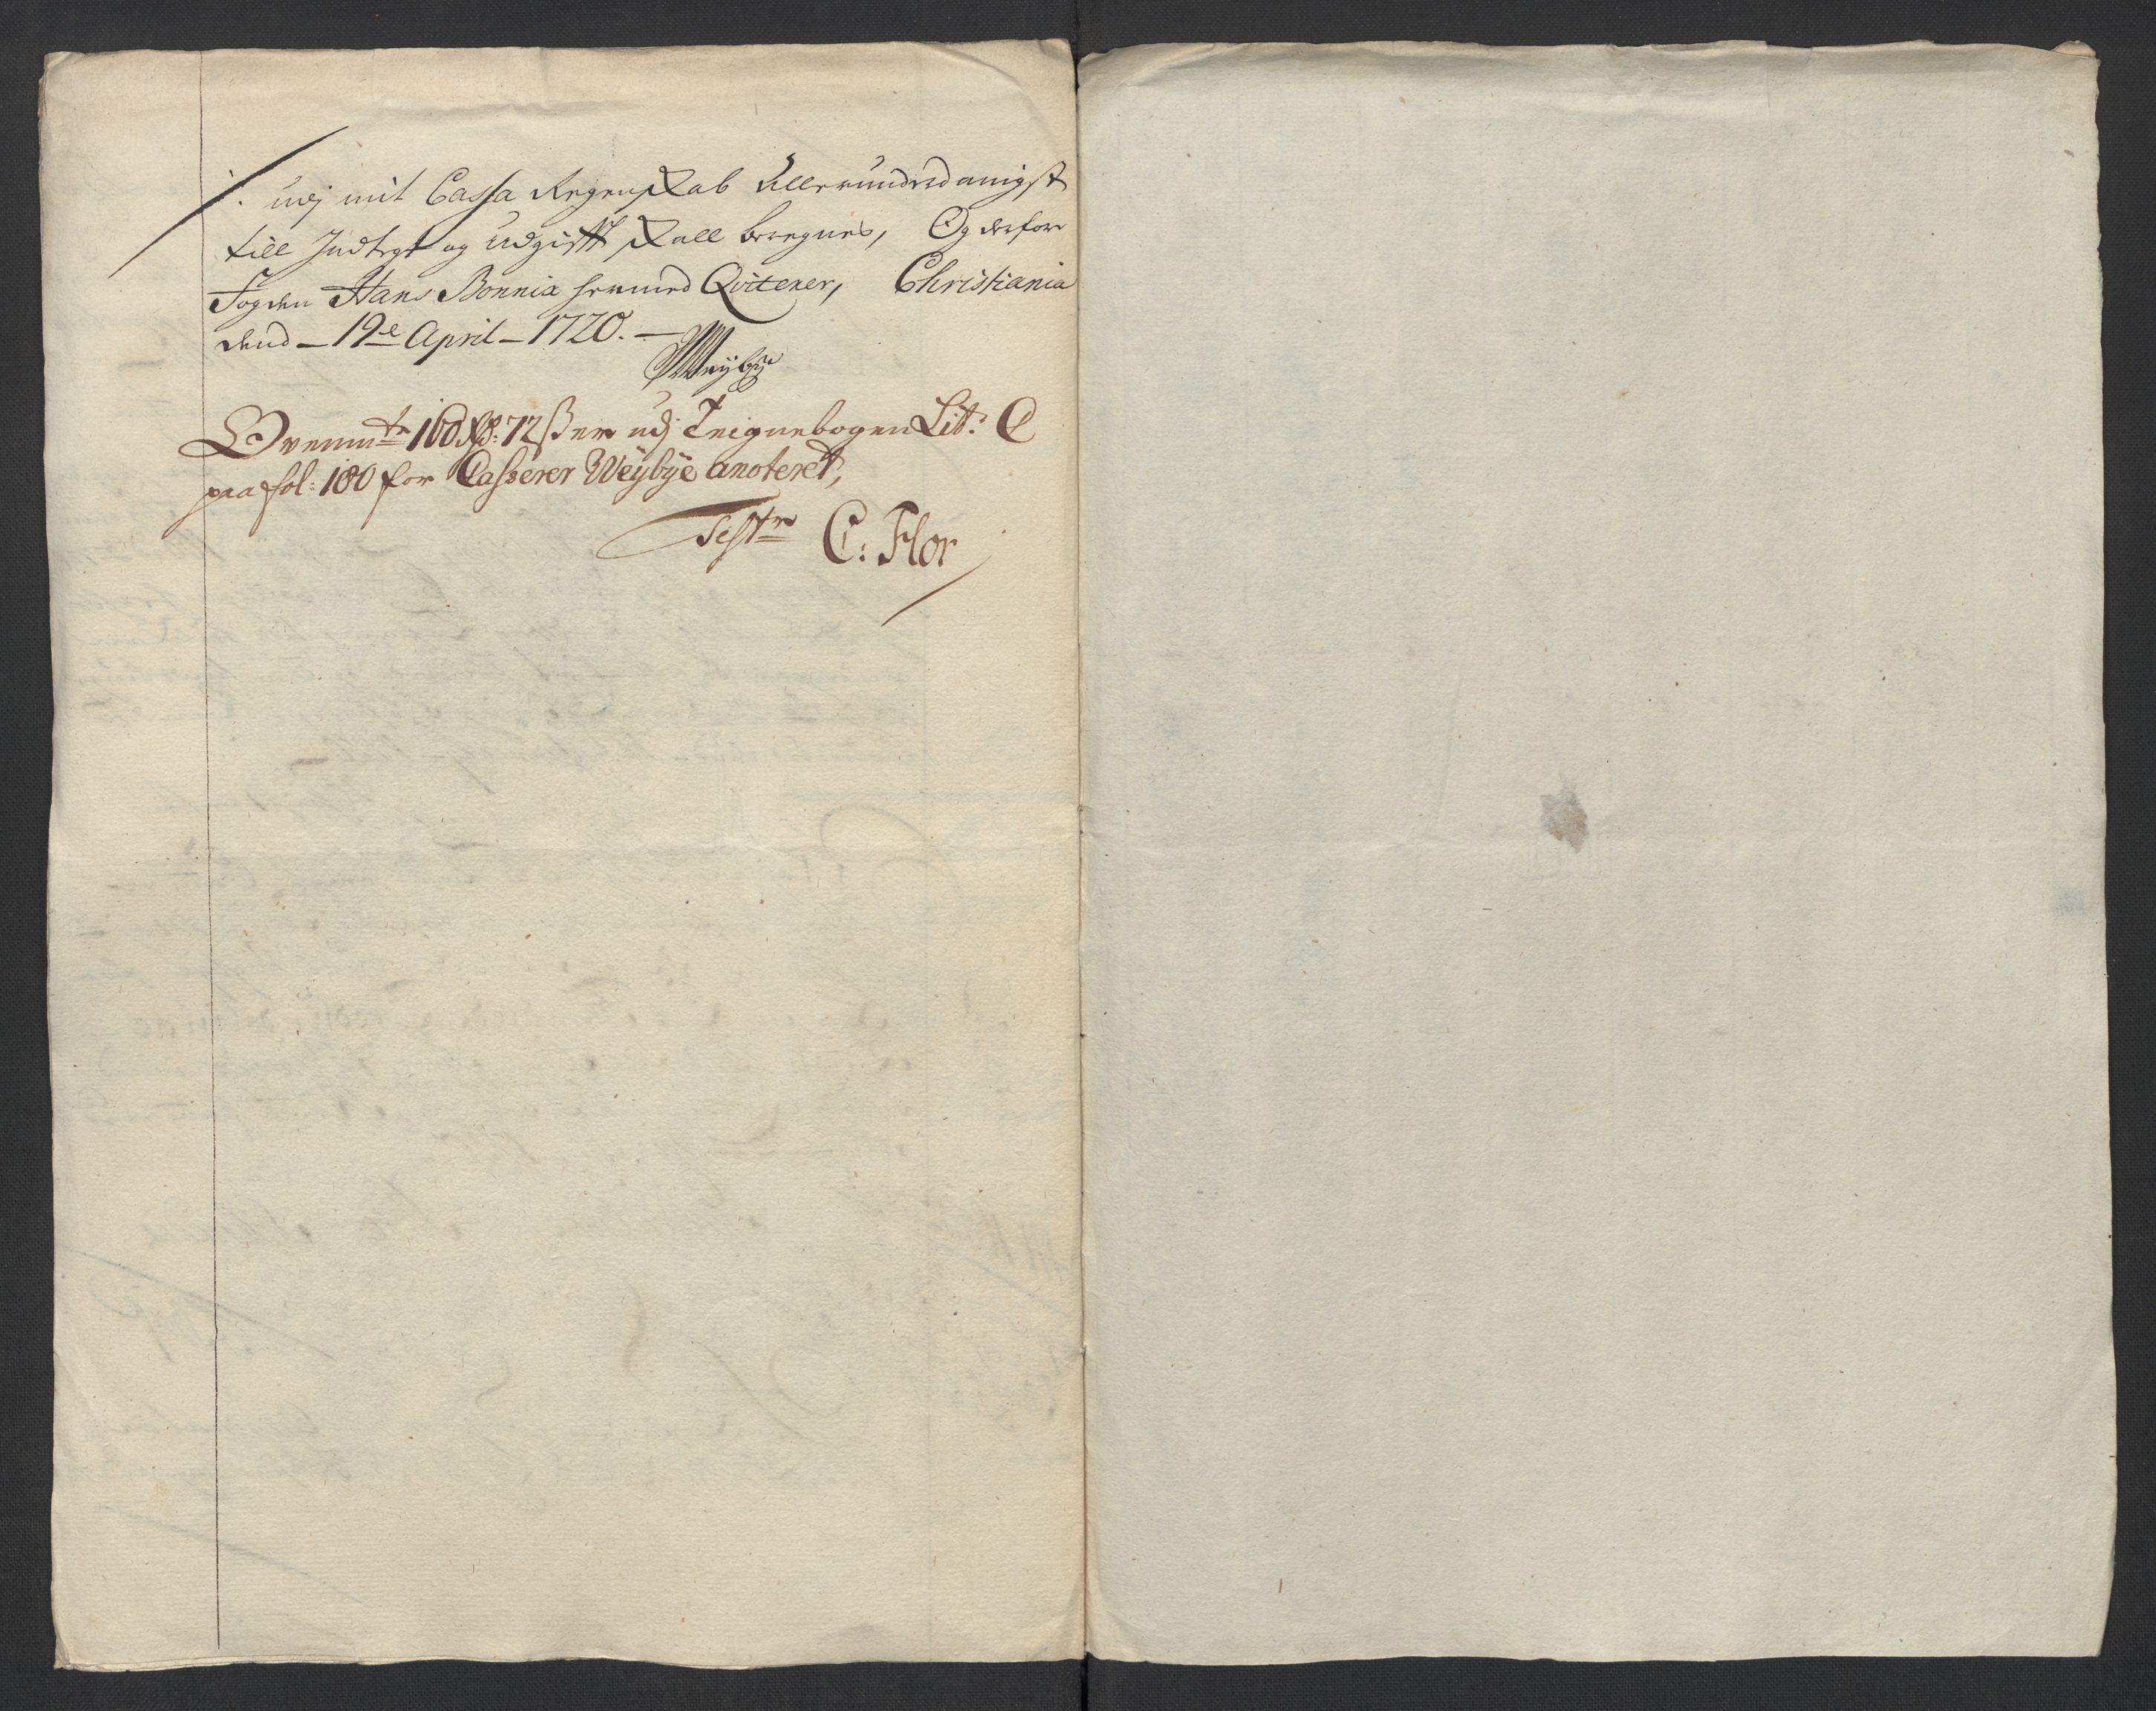 udj mit Cassa Regenskab Allerunderdanigst
till Indtegt og Udgifft skall beregnes, Og derfor
Fogden Hans Bonnix hermed Qvitterer, Christiania
dend 19de April 1720.
Weybye
Ovenmte 160 Rd: 72 ß er udj Teignebogen Lit: C
paa fol: 180 for Casserer Weybye anoteret,
Test: C: Flor